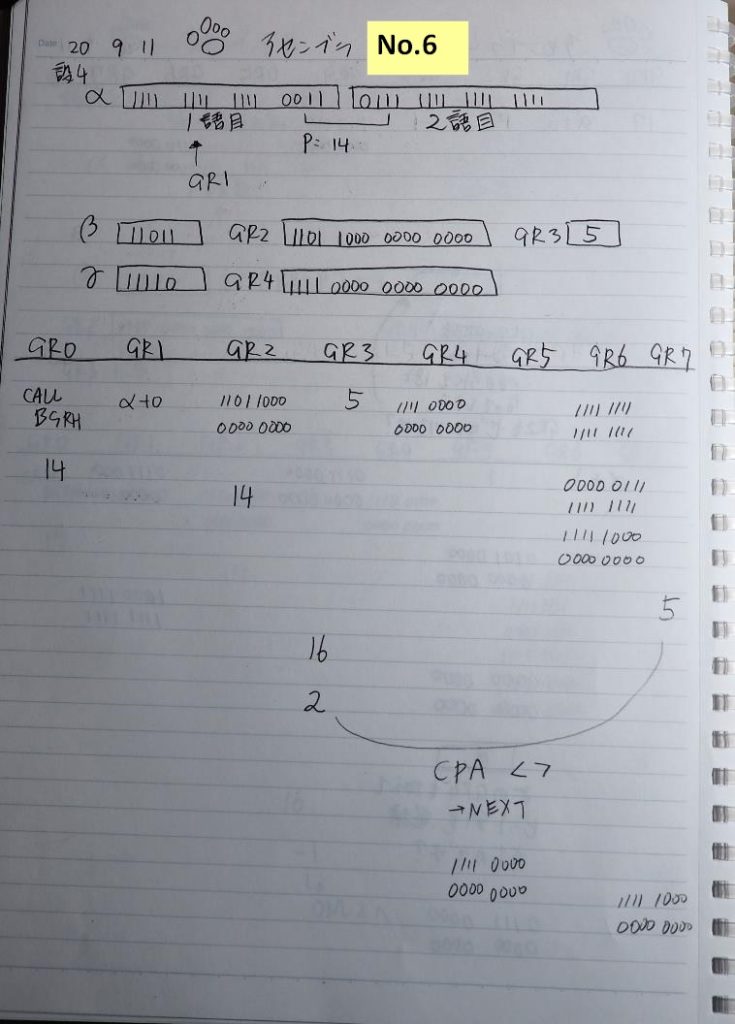 Date 20 9 11 アセンブラ No.6
設4
α 1111 1111 1111 0011 0111 1111 1111 1111
1語目 P=14 2語目
↑
GR1
β 11011 GR2 1101 1000 0000 0000 GR3 5
γ 11110 GR4 1111 0000 0000 0000
GR0 GR1 GR2 GR3 GR4 GR5 GR6 GR7
CALL α+0 11011000 5 1111 0000 1111 1111
BGRH 0000 0000 0000 0000 1111 1111
14
14 0000 0111
1111 1111
1111 1000
0000 0000
5
16
2
CPA <7
→NEXT
1111 0000
0000 0000
1111 1000
0000 0000